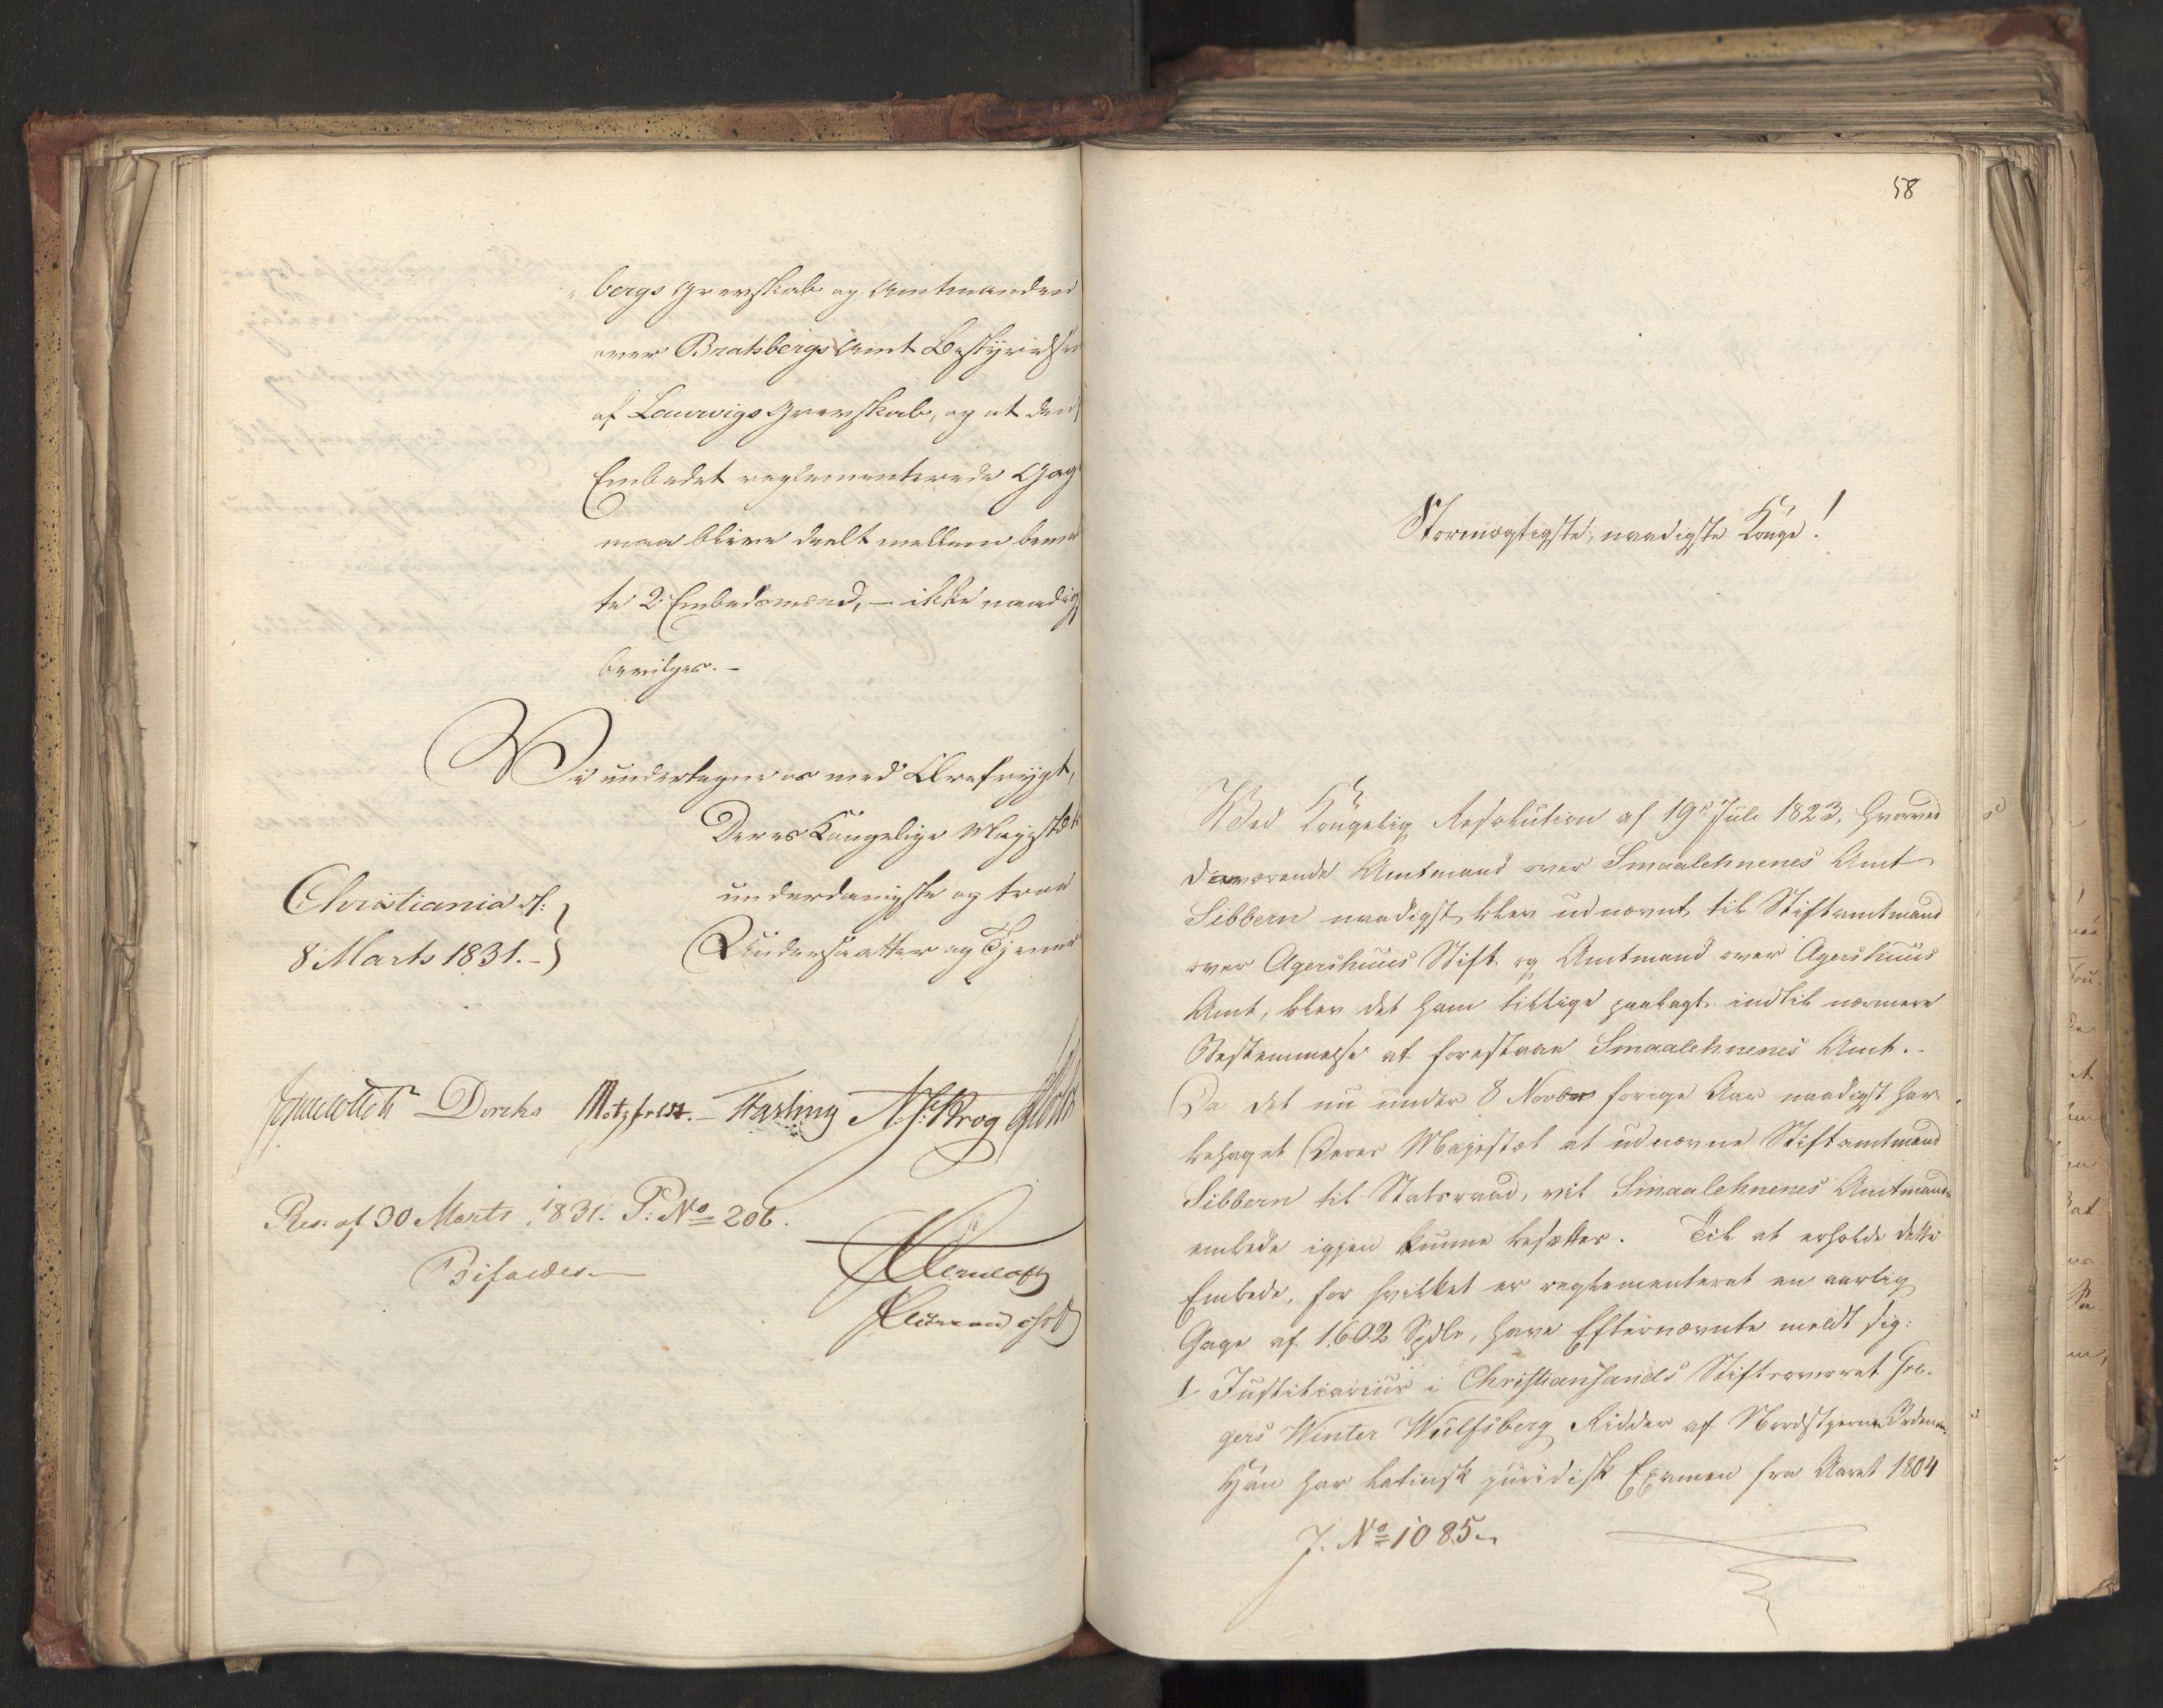 bergs Grevskab og Amtmanden
over Bratsbergs Amt Bestyrelsen
af Laurvigs Grevskab, og at den
Embedet reglementerede Gag
maa blive deelt mellem benæ
te 2 Embedsmænd, – ikke naadig
bevilges. –
Vi undertegne os med Ærefrygt,
Deres Kongelige Majestæt
underdanigste og troe
Undersaatter og Tjenere
Christiania d.
8 Marts 1831. –
Collett Diriks Motzfeldt. – Fasting N. J. Krog Holst
Res: af 30 Marts 1831. P: No 206.
Bifaldes. –
58
Stormægtigste, naadigste Konge!
Ved Kongelig Resolution af 19de Juli 1823, hvorved
daværende Amtmand over Smaalehnenes Amt
Sibbern naadigst blev udnævnt til Stiftamtmand
over Agershuus Stift og Amtmand over Agershuus
Amt, blev det ham tillige paalagt indtil nærmere
Bestemmelse at forestaae Smaalehnenes Amt. –
Da det nu under 8 Novbr forige Aar naadigst har
behaget Deres Majestæt at udnævne Stiftamtmand
Sibbern til Statsraad, vil Smaalehnenes Amtmands
embede igjen kunne besættes. Til at erholde dette
Embede, for hvilket er reglementeret en aarlig
Gage af 1602 Spdlr, have Efternævnte meldt sig:
1 Justitiarius i Christiansands Stiftsoverret Gre-
gers Winter Wulfsberg Ridder af Nordstjerne Ordenen.
Han har latinsk juridisk Examen fra Aaret 1804
J. No 1085